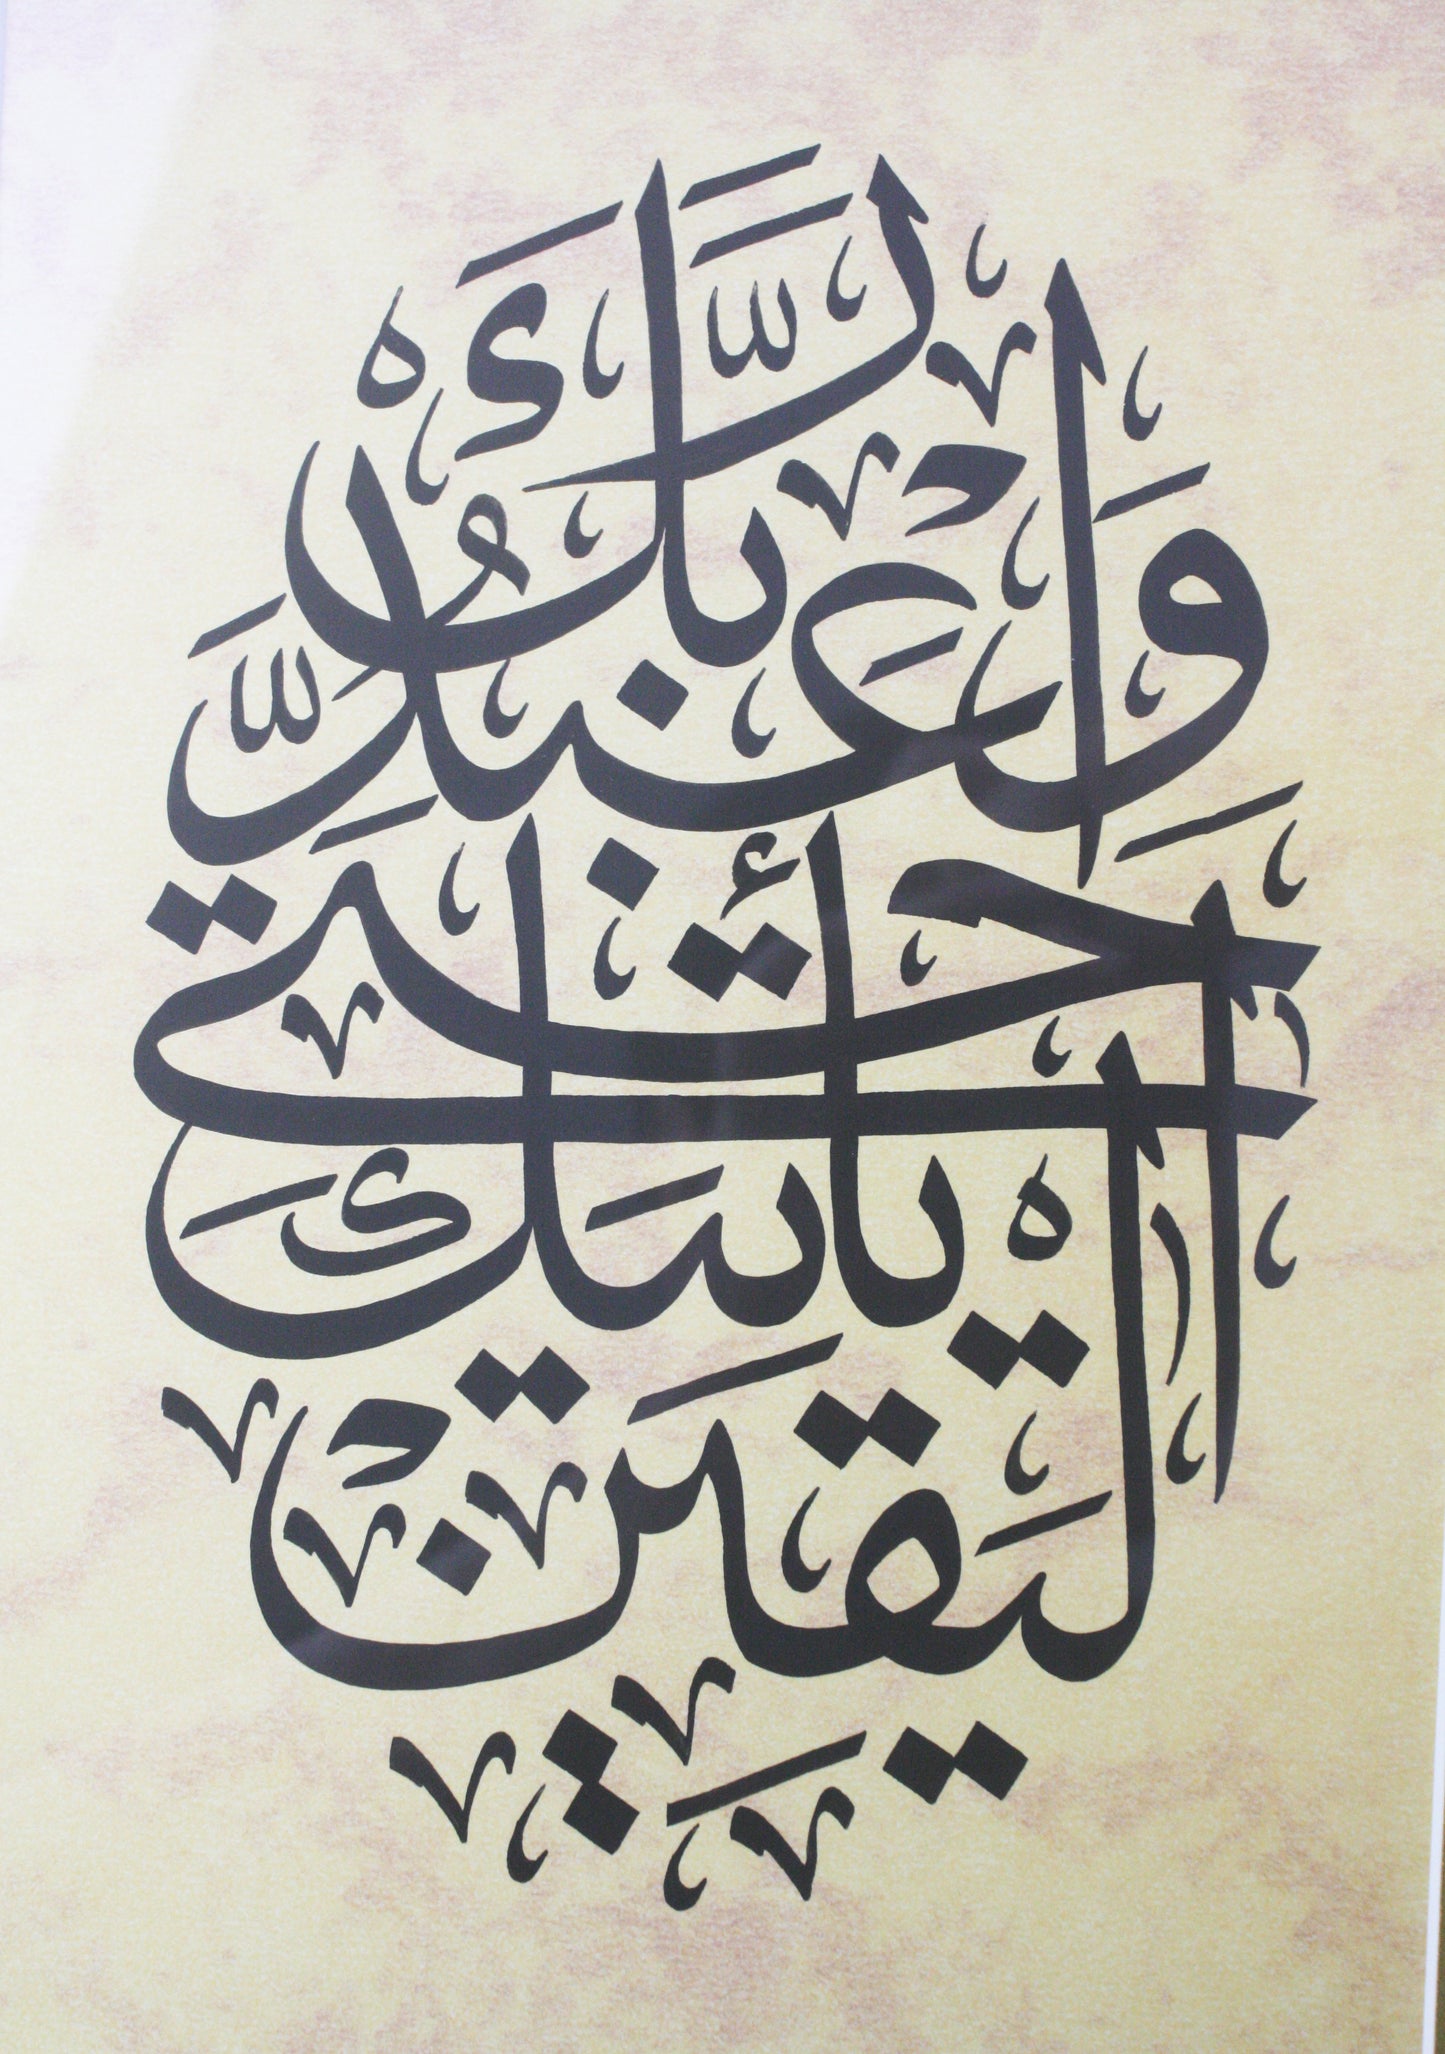 وَاعْبُدْ رَبَّكَ
حَتَّى يَأْتِيَكَ
الْيَقِينُ